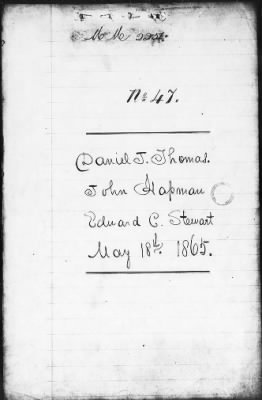 M M
No 47.
Daniel J. Thomas.
John Hapman
Edward C. Stewart
May 18th 1865.